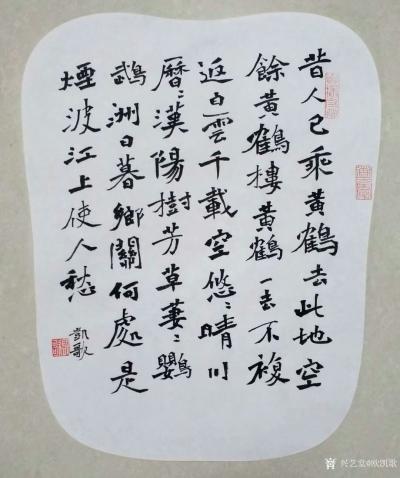 昔人已乘黄鶴去此地空
餘黄鶴樓黄鶴一去不複
返白雲千載空悠〻晴川
曆〻漢陽樹芳草萋〻鸚
鵡洲日暮鄉關何處是
煙波江上使人愁
凱歌
兴艺堂@欧凯歌